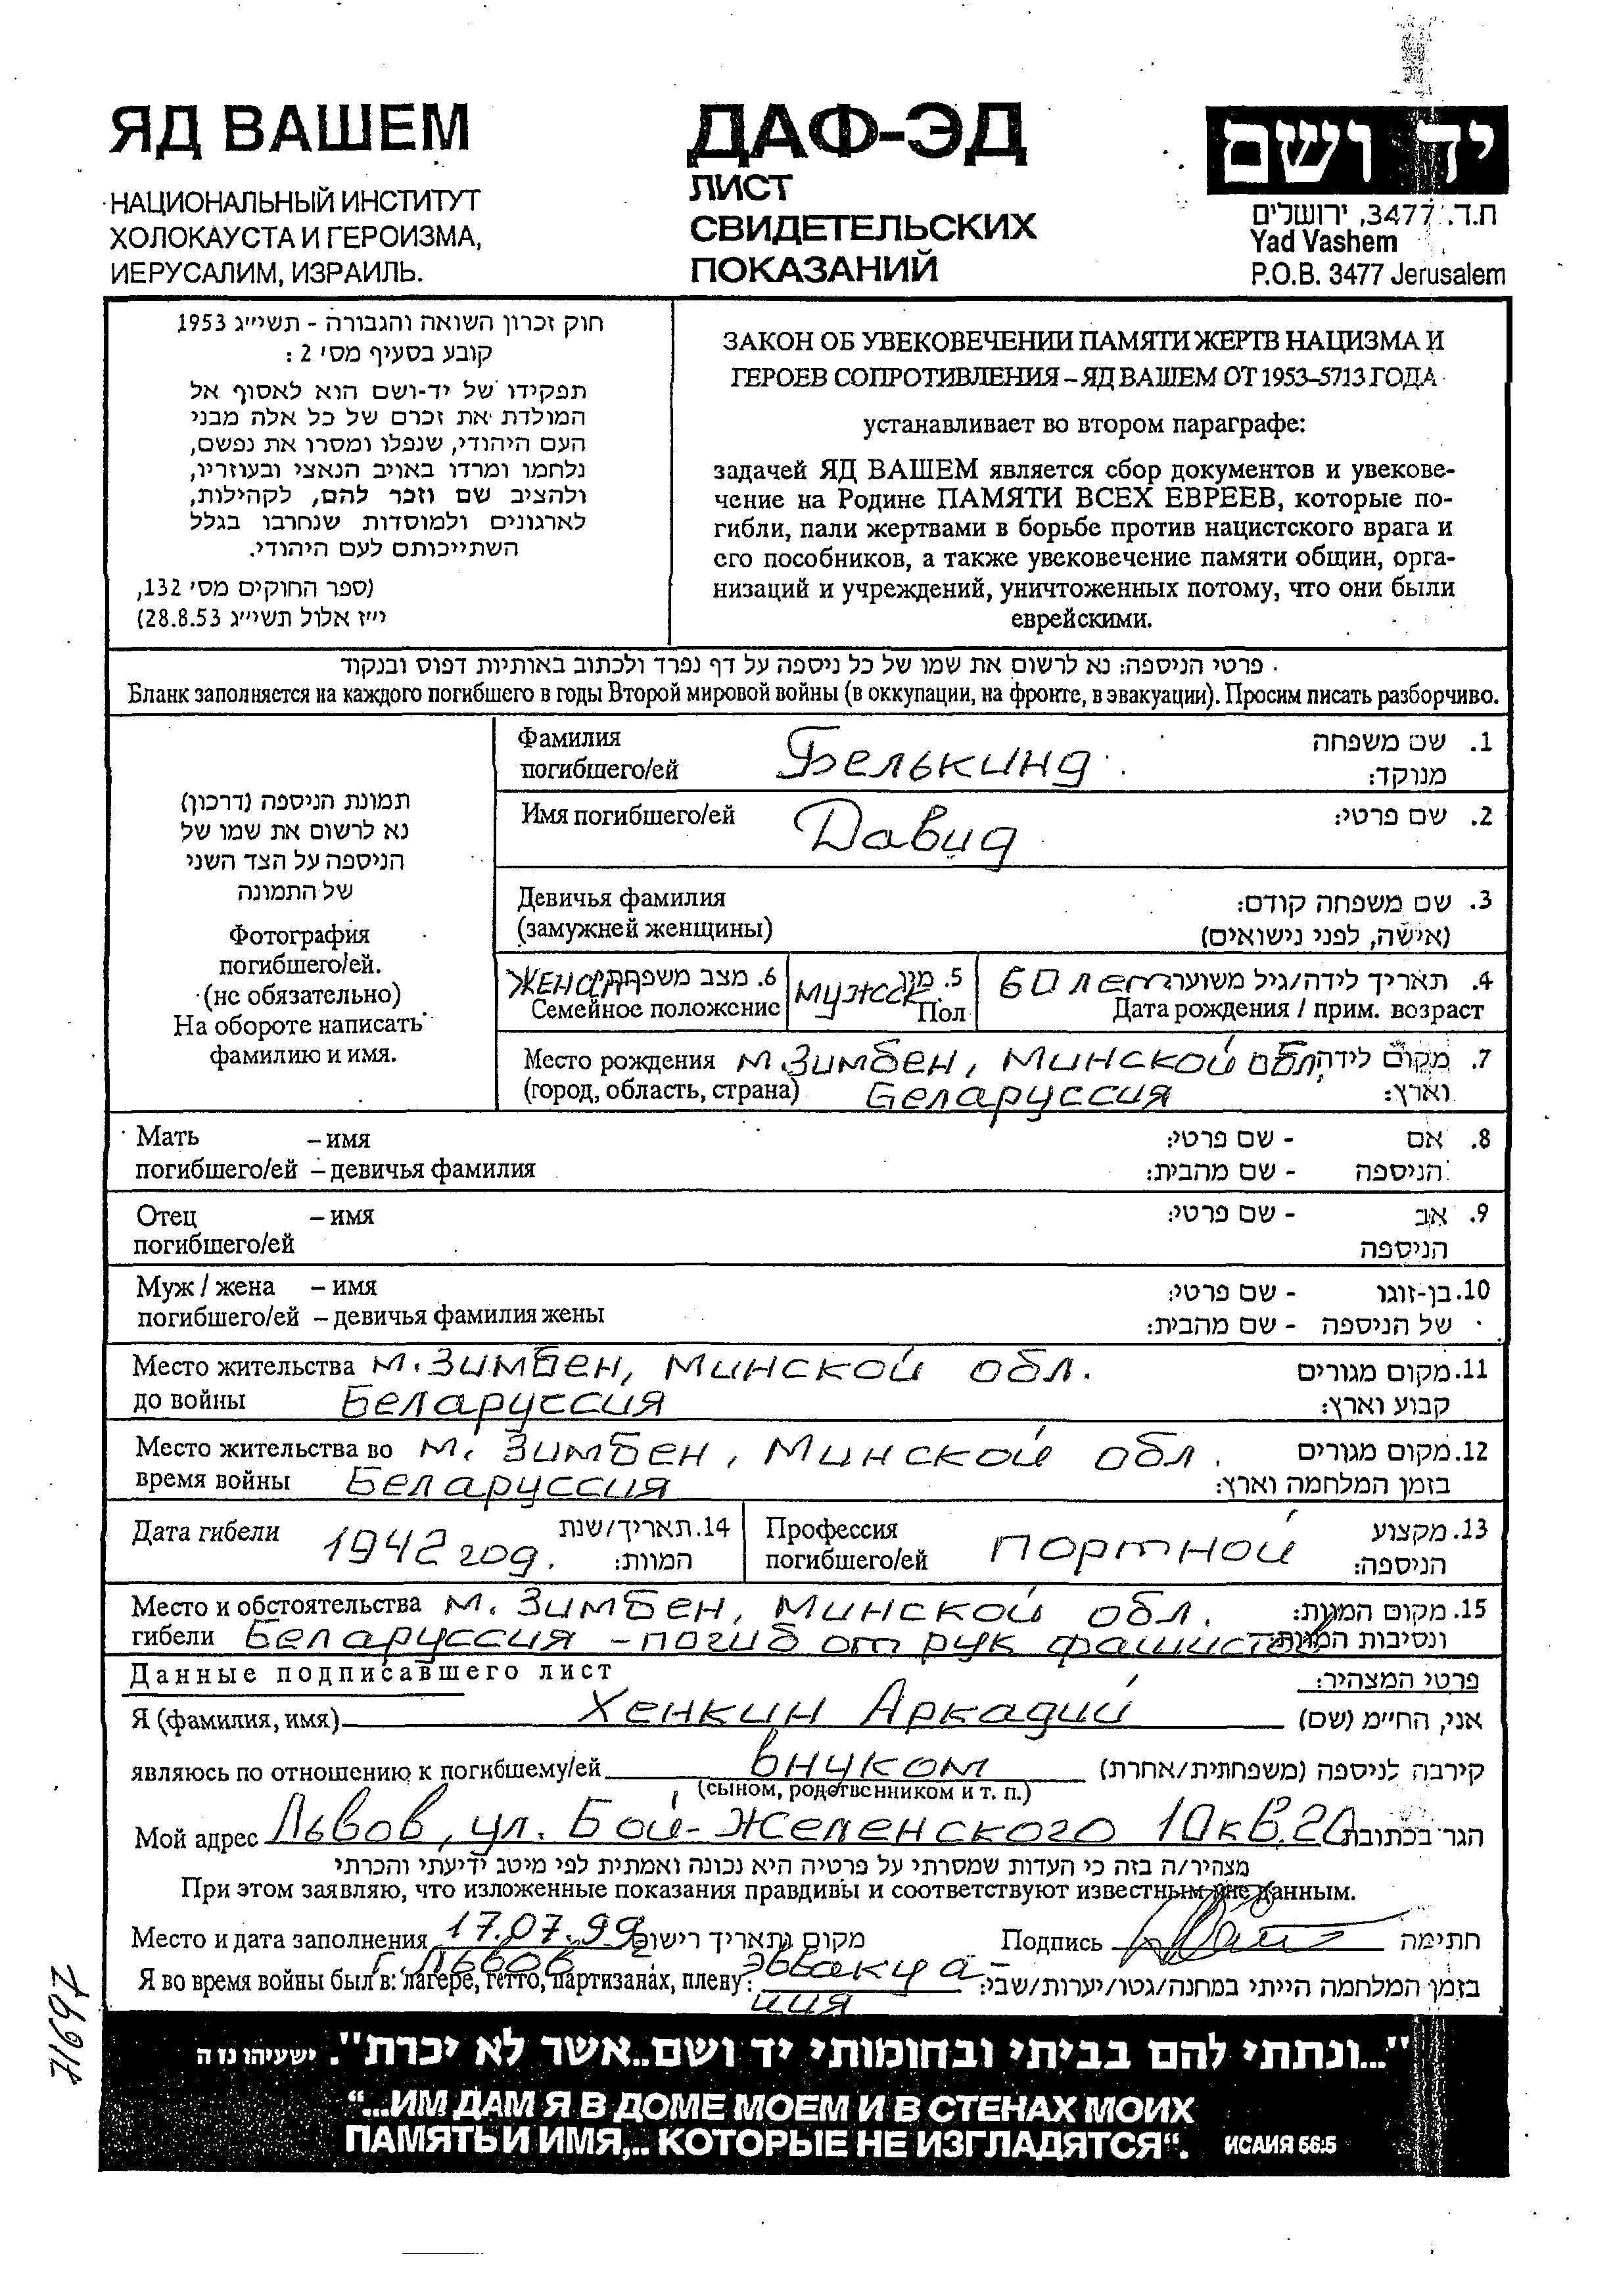 ЯД ВАШЕМ
НАЦИОНАЛЬНЫЙ ИНСТИТУТ
ХОЛОКАУСТА И ГЕРОИЗМА,
ИЕРУСАЛИМ, ИЗРАИЛЬ.
ДАФ-ЭД
ЛИСТ
СВИДЕТЕЛЬСКИХ
ПОКАЗАНИЙ
יד ושם
ת.ד. 3477, ירושלים
Yad Vashem
P.O.B. 3477 Jerusalem
חוק זכרון השואה והגבורה - תשי״ג 1953
קובע בסעיף מס׳ 2 :
תפקידו של יד-ושם הוא לאסוף אל
המולדת את זכרם של כל אלה מבני
העם היהודי, שנפלו ומסרו את נפשם,
נלחמו ומרדו באויב הנאצי ובעוזריו,
ולהציב שם וזכר להם, לקהילות,
לארגונים ולמוסדות שנחרבו בגלל
השתייכותם לעם היהודי.
(ספר החוקים מס׳ 132,
י״ז אלול תשי״ג 28.8.53)
ЗАКОН ОБ УВЕКОВЕЧЕНИИ ПАМЯТИ ЖЕРТВ НАЦИЗМА И
ГЕРОЕВ СОПРОТИВЛЕНИЯ – ЯД ВАШЕМ ОТ 1953–5713 ГОДА
устанавливает во втором параграфе:
задачей ЯД ВАШЕМ является сбор документов и увекове-
чение на Родине ПАМЯТИ ВСЕХ ЕВРЕЕВ, которые по-
гибли, пали жертвами в борьбе против нацистского врага и
его пособников, а также увековечение памяти общин, орга-
низаций и учреждений, уничтоженных потому, что они были
еврейскими.
פרטי הניספה: נא לרשום את שמו של כל ניספה על דף נפרד ולכתוב באותיות דפוס ובנקוד
Бланк заполняется на каждого погибшего в годы Второй мировой войны (в оккупации, на фронте, в эвакуации). Просим писать разборчиво.
תמונת הניספה (דרכון)
נא לרשום את שמו של
הניספה על הצד השני
של התמונה
Фотография
погибшего/ей.
(не обязательно)
На обороте написать
фамилию и имя.
Фамилия Белькинд 1. שם משפחה
погибшего/ей מנוקד:
Имя погибшего/ей Давид 2. שם פרטי:
Девичья фамилия 3. שם משפחה קודם:
(замужней женщины) (אישה, לפני נישואים)
женат 6. מצב משפחתי мужск. 5. מין 60 лет 4. תאריך לידה/גיל משוער
Семейное положение Пол Дата рождения / прим. возраст
Место рождения м. Зимбен, Минской обл. 7. מקום לידה
(город, область, страна) Беларуссия וארץ:
Мать – имя 8. אם - שם פרטי:
погибшего/ей – девичья фамилия הניספה - שם מהבית:
Отец – имя 9. אב - שם פרטי:
погибшего/ей הניספה
Муж / жена – имя 10. בן-זוגו - שם פרטי:
погибшего/ей – девичья фамилия жены של הניספה - שם מהבית:
Место жительства м. Зимбен, Минской обл. 11. מקום מגורים
до войны Беларуссия קבוע וארץ:
Место жительства во м. Зимбен, Минской обл. 12. מקום מגורים
время войны Беларуссия בזמן המלחמה וארץ:
Дата гибели 1942 год. 14. תאריך/שנת המוות:
Профессия погибшего/ей портной 13. מקצוע הניספה:
Место и обстоятельства м. Зимбен, Минской обл. 15. מקום המוות:
гибели Беларуссия – погиб от рук фашистов ונסיבות המוות:
Данные подписавшего лист פרטי המצהיר:
Я (фамилия, имя) Хенкин Аркадий אני, החי״מ (שם)
являюсь по отношению к погибшему/ей внуком קירבה לניספה (משפחתית/אחרת)
(сыном, родственником и т. п.)
Мой адрес Львов, ул. Бой-Желенского 10 кв. 20 הגר בכתובת
מצהיר/ה בזה כי העדות שמסרתי על פרטיה היא נכונה ואמתית לפי מיטב ידיעתי והכרתי
При этом заявляю, что изложенные показания правдивы и соответствуют известным мне данным.
Место и дата заполнения 17.07.99 г. Львов מקום ותאריך רישום Подпись חתימה
Я во время войны был в: лагере, гетто, партизанах, плену: эввакуа- בזמן המלחמה הייתי במחנה/גטו/יערות/שבי:
ция
71697
"...ונתתי להם בביתי ובחומותי יד ושם..אשר לא יכרת". ישעיהו נו ה
“...ИМ ДАМ Я В ДОМЕ МОЕМ И В СТЕНАХ МОИХ
ПАМЯТЬ И ИМЯ,.. КОТОРЫЕ НЕ ИЗГЛАДЯТСЯ“. ИСАИЯ 56:5